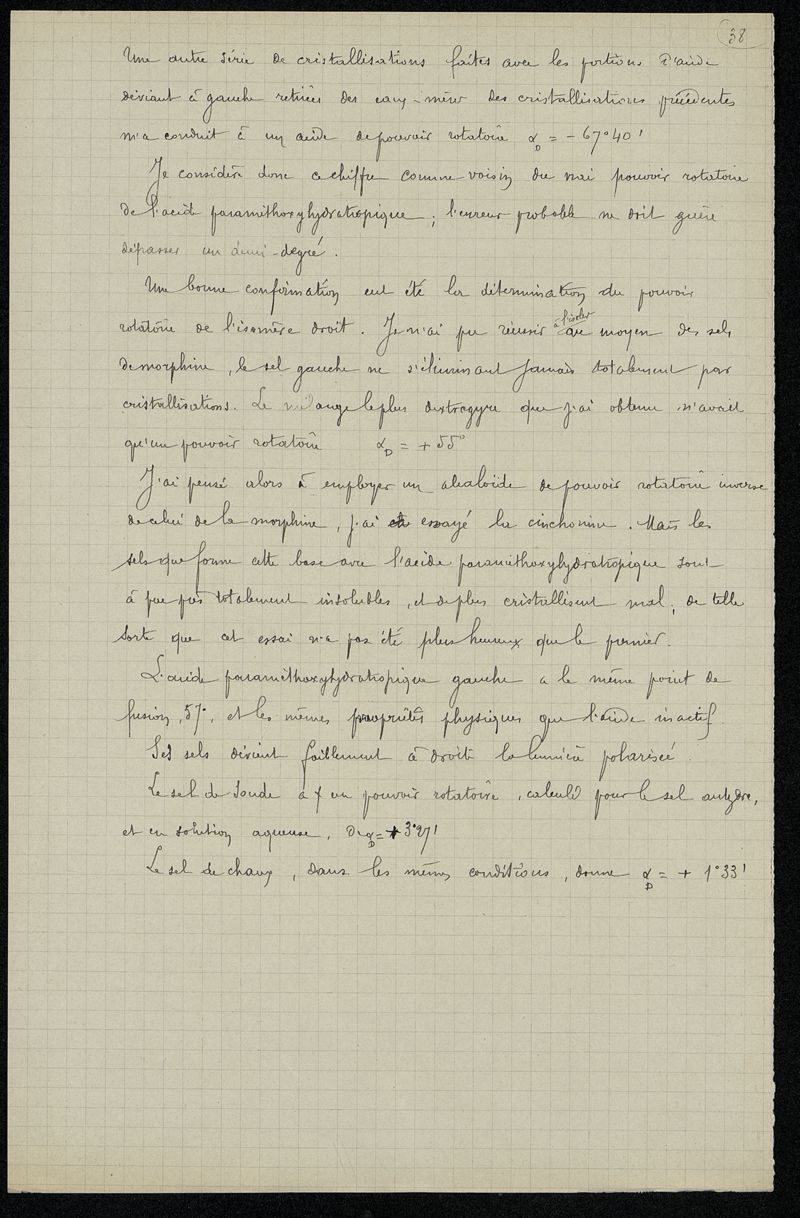 38
Une autre série de cristallisations faites avec les portions d'acide
déviant à gauche retirées des eaux-mères des cristallisations précédentes
m'a conduit à un acide de pouvoir rotatoire α_D = - 67°40'
Je considère donc ce chiffre comme voisin du vrai pouvoir rotatoire
de l'acide paraméthoxyhydratropique ; l'erreur probable ne doit guère
dépasser un demi-degré.
Une bonne confirmation eut été la détermination du pouvoir
rotatoire de l'isomère droit. Je n'ai pu réussir à l'isoler au moyen des sels
de morphine, le sel gauche ne s'éliminant jamais totalement par
cristallisations. Le mélange le plus dextrogyre que j'ai obtenu n'avait
qu'un pouvoir rotatoire α_D = + 55°
J'ai pensé alors à employer un alcaloïde de pouvoir rotatoire inverse
de celui de la morphine, j'ai essayé la cinchonine. Mais les
sels que forme cette base avec l'acide paraméthoxyhydratropique sont
à peu près totalement insolubles, et de plus cristallisent mal ; de telle
sorte que cet essai n'a pas été plus heureux que le premier.
L'acide paraméthoxyhydratropique gauche a le même point de
fusion, 57°, et les mêmes propriétés physiques que l'acide inactif.
Ses sels dévient faiblement à droite la lumière polarisée.
Le sel de soude a un pouvoir rotatoire, calculé pour le sel anhydre,
et en solution aqueuse, de α_D = + 3°27'
Le sel de chaux, dans les mêmes conditions, donne α_D = + 1°33'